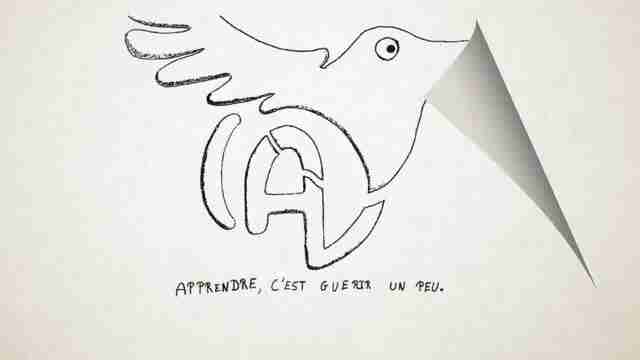 A
APPRENDRE, C'EST GUERIR UN PEU.